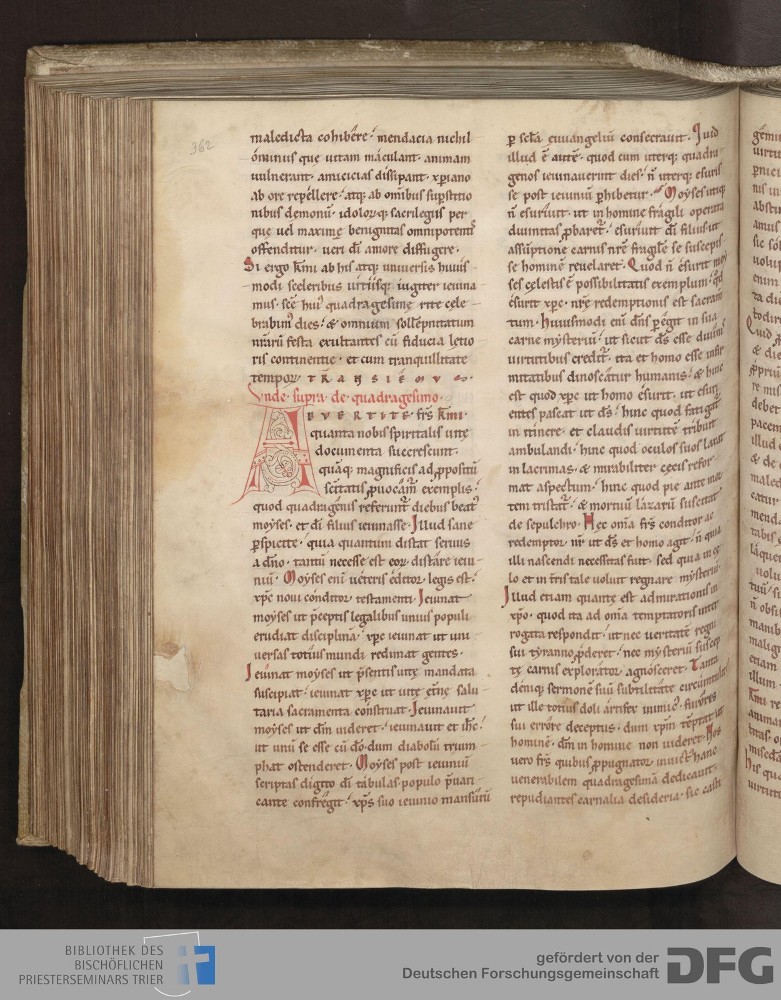 362
maledicta cohibere· mendacia nichil
ominus que uitam maculant· animam
uulnerant· amicicias dissipant· xp̄iano
ab ore repellere· atq; ab om̄ibus sup̄stitio
nibus demonū· idolorq; sacrilegiis per
que uel maxime benignitas omnipotentis
offenditur· ueri dī amore diffugere·
Si ergo kr̄mi ab his atq; uniuersis huius
modi sceleribus uitiisq; iugiter ieiuna
mus· sc̄e huiꝰ quadragesime rite cele
brabimꝰ dies· & omnium sollēpnitatum
nr̄arū festa exultantes cū fiducia letio
ris continentie· et cum tranquillitate
tempor TRANSIEMUS·
Vnde supra de quadragesimo·
ADUERTITE fr̄s kr̄mi·
quanta nobis spiritalis uite
documenta succrescunt·
quāq; magnificis ad p̱positū
sc̄itatis p̱uocam̄ exemplis·
quod quadrigenis referunt̄ diebus beatꝰ
moyses· et dī filius ieiunasse· Illud sane
p̱spicite· quia quantum distat seruus
a dn̄o· tantū necesse est eoꝝ distare ieiu
niū· Moyses enī ueteris ēditor legis est·
xp̄c noui conditor testamenti· Ieiunat
moyses ut p̄ceptis legalibus unius populi
erudiat disciplinā· xp̄c ieiunat ut uni
uersas totius mundi redimat gentes·
Ieiunat moyses ut p̄sentis uite mandata
suscipiat· ieiunat xp̄c ut uite et̄ne salu
taria sacramenta construat· Ieiunauit
moyses ut dm̄ uideret· ieiunauit et ih̄c·
ut unū se esse cū dō· dum diabolū trium
phat ostenderet· Moyses post ieiuniū
scriptas digito dī tabulas· populo p̄uari
cante confregit· xp̄s suo ieiunio mansurū
p̱ sc̄la euuangeliū consecrauit· Quid
illud ē autē· quod cum uterq; quadra
genos ieiunauerint dies· n̄ uterq; esuris
se post ieiuniū p̱hibetur· Moyses utiq;
n̄ esuriuit· ut in homine fragili operata
diuinitas p̱baret̄· esuriunt dī filius ut
assūptione carnis nr̄e fragilē se suscepis
se hominē reuelaret· Quod n̄ esurit moy
ses celestis ē possibilitatis exemplum· qd̄
esurit xp̄c· nr̄e redemptionis est sacram̄
tum· Huiusmodi enī dn̄s p̱egit in sua
carne mysteriū· ut sicut dš esse diuinis
uirtutibus credit̄· ita et homo esse infir
mitatibus dinoscatur humanis· & hinc
est quod xp̄c ut homo esurit· ut esuri
entes pascat ut dš· hinc quod fatigat̄
in itinere· et claudis uirtutē tribuit
ambulandi· hinc quod oculos suos laxat
in lacrimas· & mirabiliter cecis refor
mat aspectum· hinc quod pie ante mor
tem tristat̄· & mortuū lazarū suscitat
de sepulchro· Hec om̄a fr̄s conditor ac
redemptor nr̄ ut dš et homo agit· n̄ quia
illi nascendi necessitas fuit· sed quia in ce
lo et in tr̄is tale uoluit regnare mysteriū·
Illud etiam quante est admirationis in
xp̄o· quod ita ad om̄a temptatoris inter
rogata respondit· ut nec ueritatē regni
sui tyranno p̱deret· nec mysteriū suscep
te carnis explorator agnosceret· Tanta
deniq; sermonē suū subtilitate circumuallat
ut ille totius doli artifex inimicꝰ· furoris
sui errore deceptus· dum xp̄m tēptat ut
hominē· dm̄ in homine non uideret· Nos
uero fr̄s quibus p̱pugnator inuict̄ hanc
uenerabilem quadragesimā dedicauit·
repudiantes carnalia desideria· sic casti
BIBLIOTHEK DES
BISCHÖFLICHEN
PRIESTERSEMINARS TRIER
gefördert von der
Deutschen Forschungsgemeinschaft
DFG